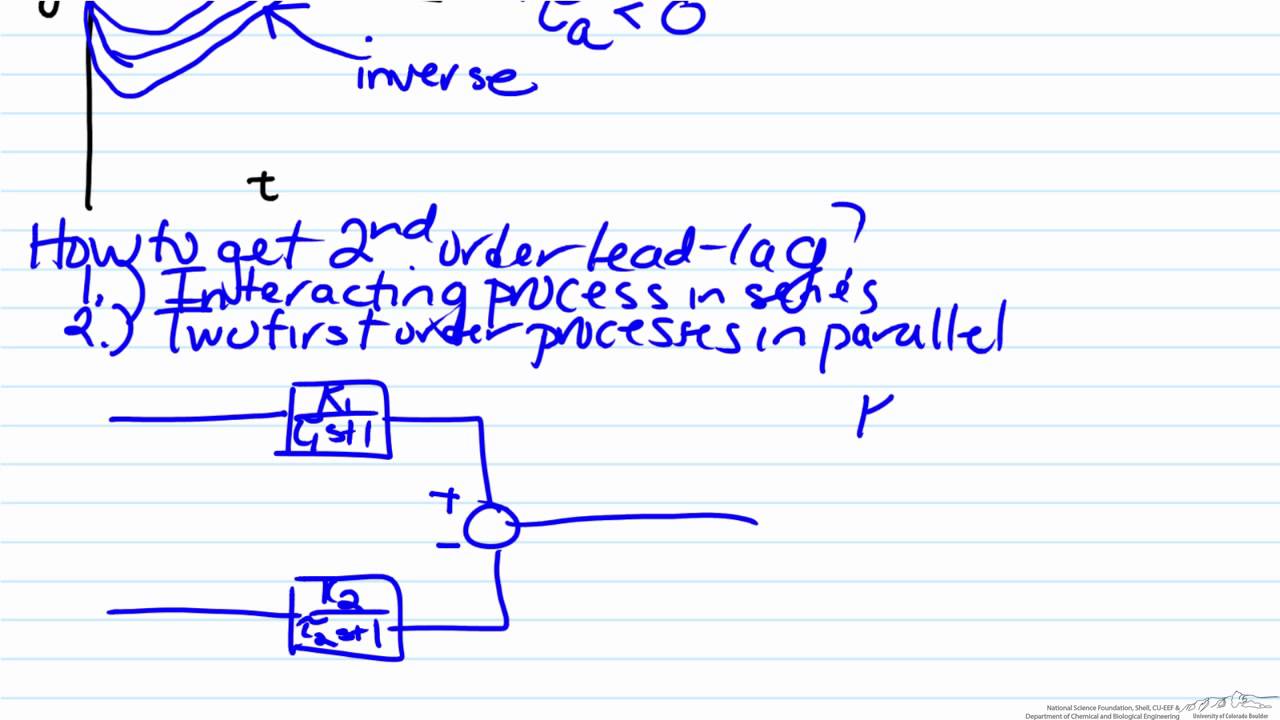 0
τa < 0
inverse
t
How to get 2nd order lead-lag?
1.) Interacting process in series
2.) Two first order processes in parallel
K1
τ1s+1
K
+
-
K2
τ2s+1
National Science Foundation, Shell, CU-EEF &
Department of Chemical and Biological Engineering
University of Colorado Boulder